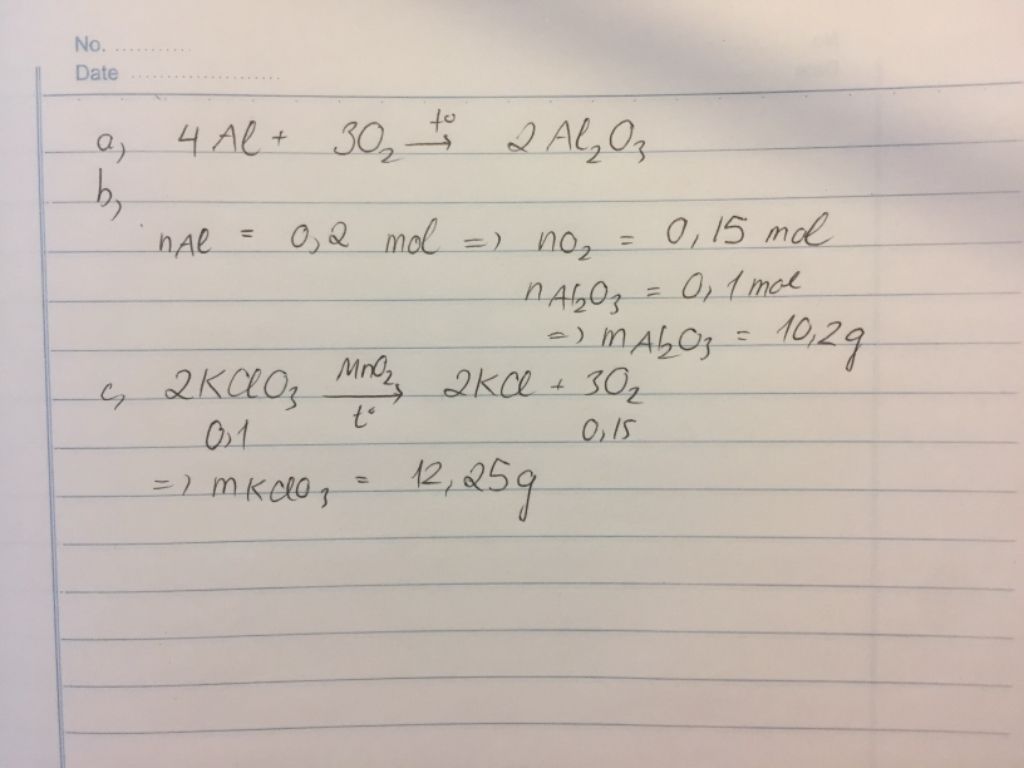 No. ............
Date ........................
a, 4Al + 3O₂ →(t°) 2Al₂O₃
b,
nAl = 0,2 mol => nO₂ = 0,15 mol
nAl₂O₃ = 0,1 mol
=> mAl₂O₃ = 10,2g
c, 2KClO₃ →(MnO₂, t°) 2KCl + 3O₂
0,1 0,15
=> mKClO₃ = 12,25g